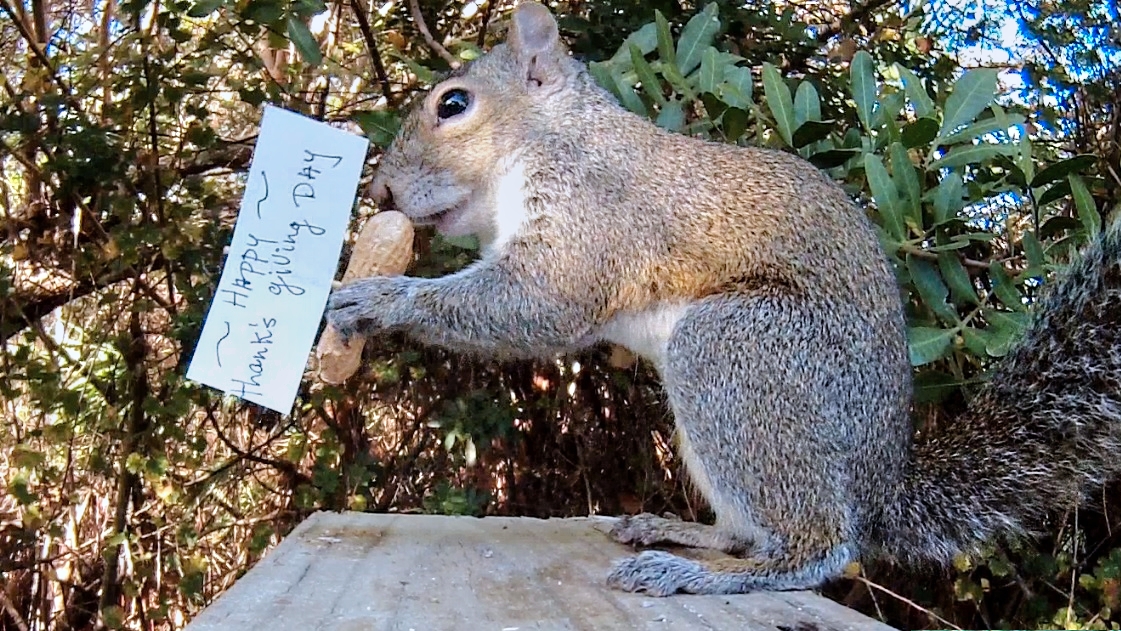 ~ HAPPY ~
thank's giving DAY